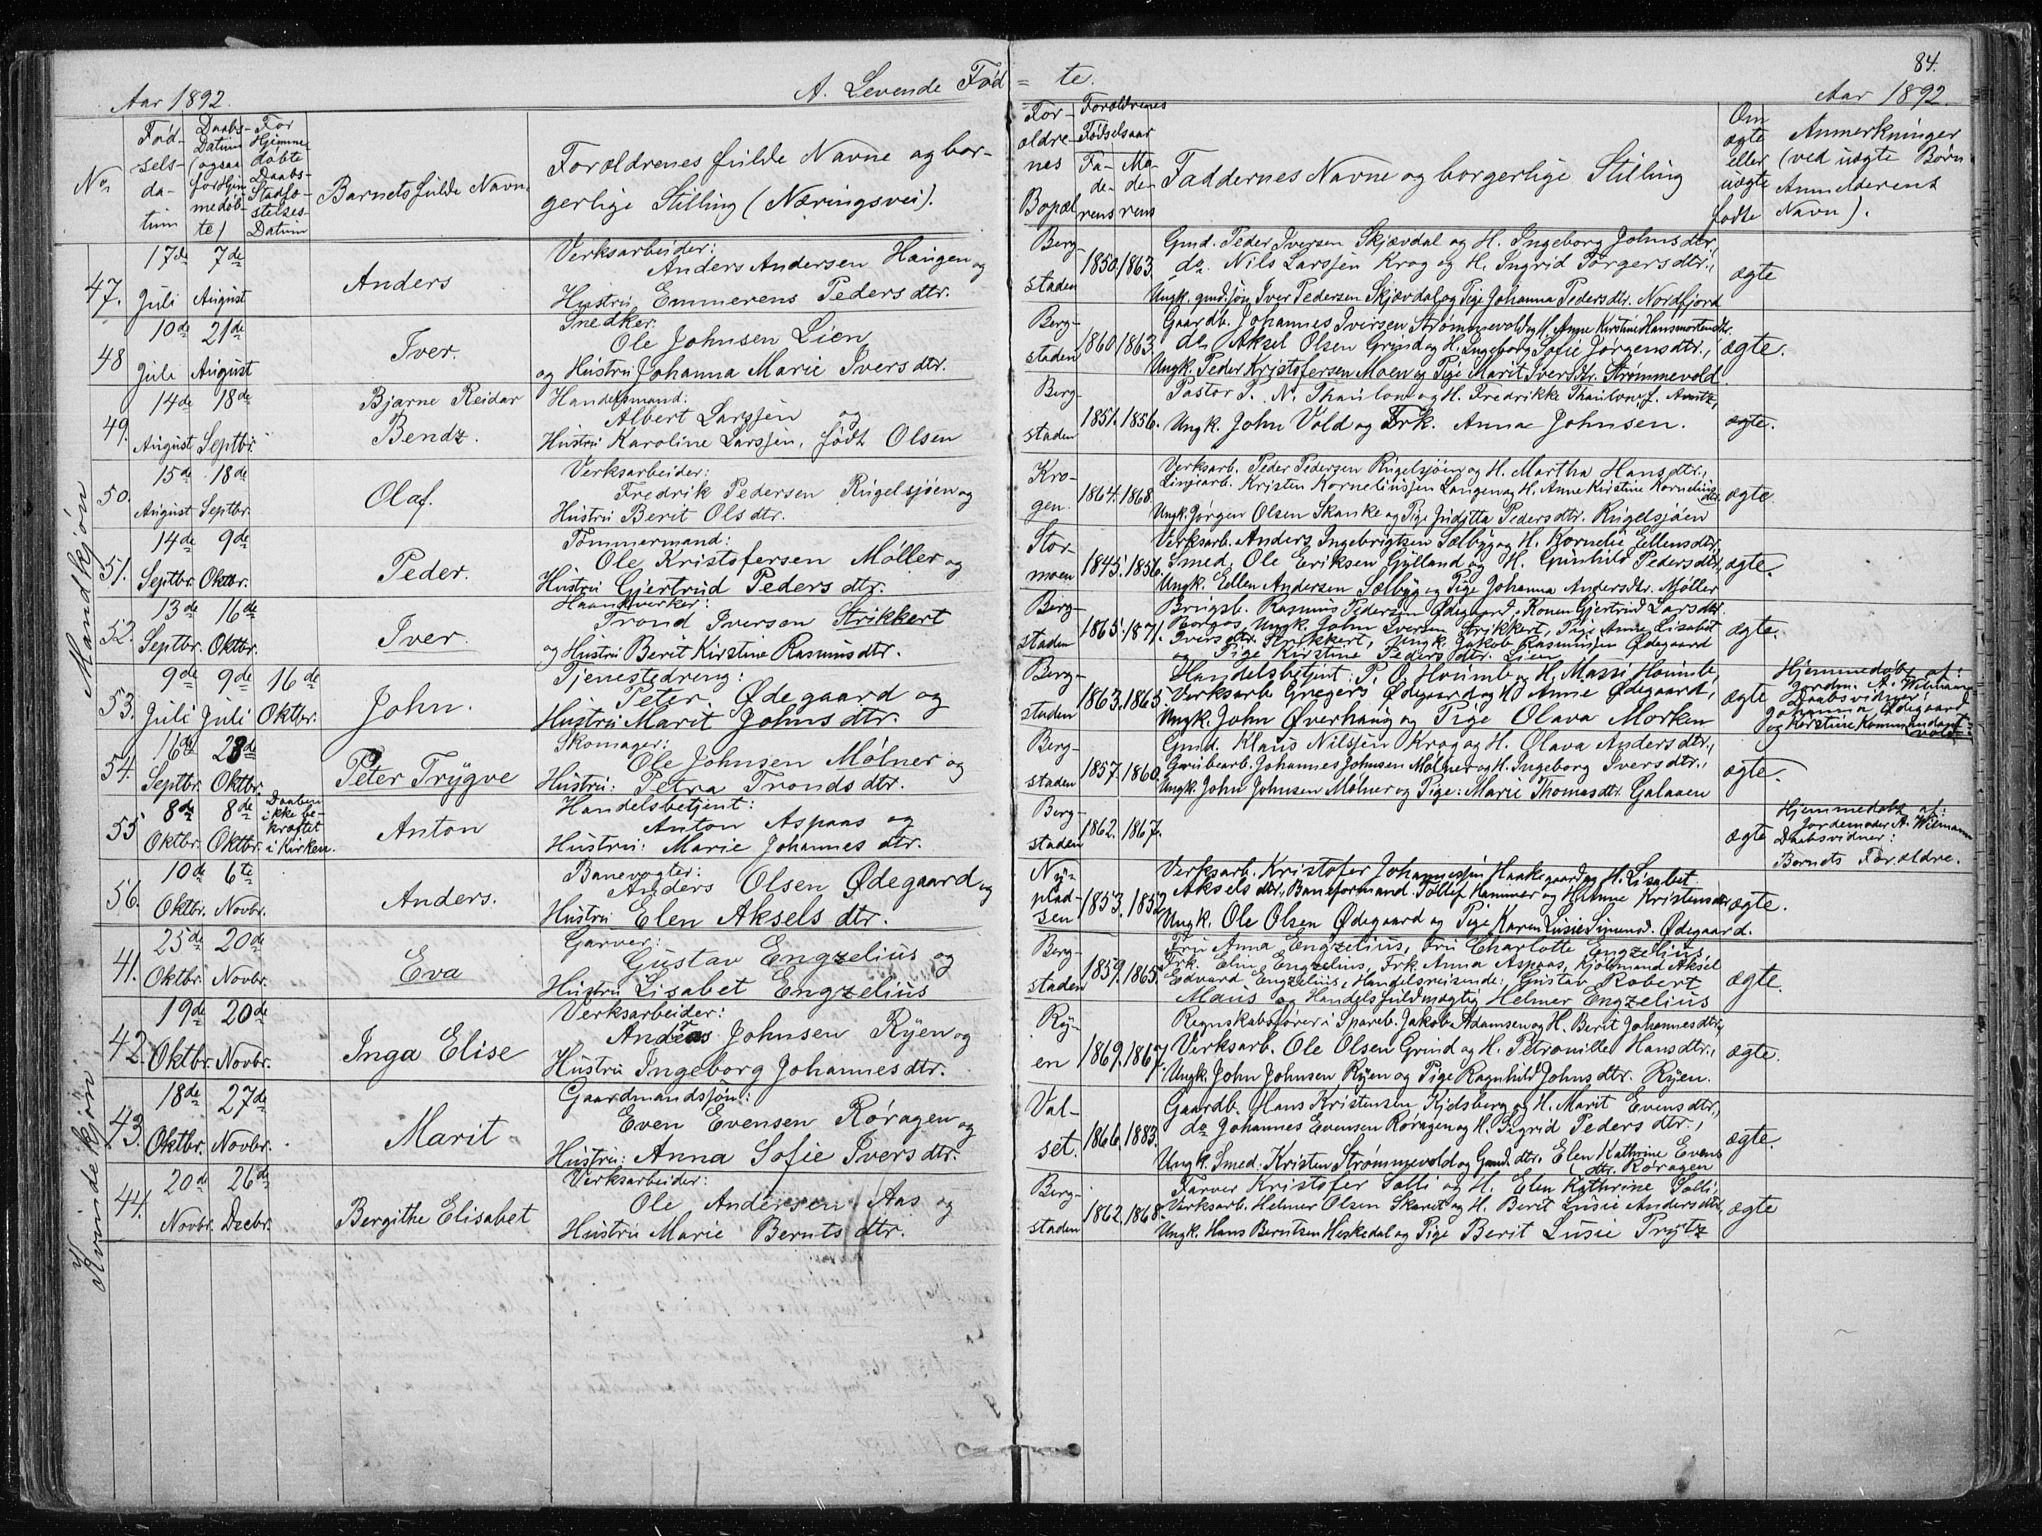 84.
Aar 1892. A. Levende Fød = te. Aar 1892.
No Fødselsdatum Daabs-Datum (ogsaa for Hjemmedøbte) For Hjemmedøbte Daabs-Stadfæstelses-Datum Barnets fulde Navn Forældrenes fulde Navne og borgerlige Stilling (Næringsvei). Forældrenes Bopæl Forældrenes Fødselsaar Faderens Moderens Faddernes Navne og borgerlige Stilling Om ægte eller uægte fødte Anmerkninger (ved uægte Børn Anm Moderens Navn).
Mandkjøn
47. 17de Juli 7de August Anders
Verksarbeider:
Anders Andersen Haugen og
Hustru Emmerens Pedersdtr.
Bergstaden 1850. 1863.
Gmd. Peder Iversen Skjævdal og H. Ingeborg Johnsdtr,
do. Nils Larssen Krog og H. Ingrid Jørgersdtr.,
Ungk. gmd.søn Iver Pedersen Skjævdal og Pige Johanna Pedersdtr. Nordfjord
ægte
48 10de Juli 21de August Iver.
Snedker:
Ole Johnsen Lien
og Hustru Johanna Marie Iversdtr.
Bergstaden 1860. 1863.
Gaardb. Johannes Iversen Strømmevold og H. Anne Kirstine Hansmortensdtr.
do Aksel Olsen Grind og H. Ingeborg Sofie Jørgensdtr.,
Ungk. Peder Kristofersen Moen og Pige Marit Iversdtr. Strømmevold.
ægte.
49. 14de August 18de Septbr. Bjarne Reidar Bendz.
Handelsmand:
Albert Larssen og
Hustru Karoline Larssen, født Olsen
Bergstaden 1851. 1856.
Pastor J. N. Thaulow og H. Fredrikke Thaulow, f. Arntz,
Ungk. John Vold og Frk. Anna Johnsen.
ægte.
50. 15de August 18de Septbr. Olaf.
Verksarbeider:
Fredrik Pedersen Rugelsjøen og
Hustru Berit Olsdtr.
Krogen. 1864. 1868.
Verksarb. Peder Pedersen Rugelsjøen og H. Martha Hansdtr.,
Linjearb. Kristen Korneliussen Langen og H. Anne Kirstine Korneliusdtr
Ungk. Jørgen Olsen Skanke og Pige Juditta Pedersdtr. Rugelsjøen
ægte
51. 14de Septbr. 9de Oktbr. Peder.
Tømmermand:
Ole Kristofersen Møller og
Hustru Gjertrud Pedersdtr.
Stormoen 1845. 1856.
Verksarb. Anders Ingebrigtsen Sælbyg og H. Kornelie Ellensdtr,
Smed. Ole Eriksen Gylland og H. Gunhild Pedersdtr,
Ungk. Ellen Andersen Sælbyg og Pige Johanna Andersdtr. Møller
ægte.
52. 13de Septbr. 16de Oktbr. Iver.
Haandverker:
Trond Iversen Strikkert
og Hustru Berit Kirstine Rasmusdtr.
Bergstaden 1865. 1871.
Brugsb. Rasmus Pedersen Ødegaard, Konen Gjertrud Larsdtr.
Borgos, Ungk. John Iversen Strikkert, Pige Anne Lisabet
Iversdtr. Strikkert, Ungk. Jakob Rasmussen Ødegaard
og Pige Kirstine Pedersdtr. Lien
ægte.
53. 9de Juli 9de Juli 16de Oktbr. John.
Tjenestedreng:
Peter Ødegaard og
Hustru Marit Johnsdtr.
Bergstaden 1863. 1865.
Handelsbetjent P. O. Houmb og H. Massi Houmb,
Verksarb. Gregers Ødegaard og H. Anne Ødegaard,
Ungk. John Øverhaug og Pige Olava Morken
ægte
Hjemmedøbt af:
Jordm. A. Wilmann
Daabsvidner:
Johanna Ødegaard
og Kirstine Kommandantvold.
54. 16de Septbr. 23de Oktbr. Peter Trygve
Skomager:
Ole Johnsen Mølner og
Hustru: Petra Trondsdtr.
Bergstaden 1857. 1860.
Gmd. Klaus Nilssen Krog og H. Olava Andersdtr.,
Grubearb. Johannes Johnsen Mølner og H. Ingeborg Iversdtr.,
Ungk. John Johnsen Mølner og Pige: Marie Thomasdtr. Galaaen
ægte.
55. 8de Oktbr. 8de Oktbr. Daaben ikke bekræftet i Kirken. Anton
Handelsbetjent:
Anton Aspaas og
Hustru: Marie Johannesdtr.
Bergstaden 1862. 1867.
ægte
Hjemmedøbt af:
Jordemoder A. Wilmann
Daabsvidner:
Barnets Forældre.
56. 10de Oktbr. 6te Novbr. Anders.
Banevogter:
Anders Olsen Ødegaard og
Hustru Elen Akselsdtr.
Nypladsen 1853. 1852
Verksarb. Kristofer Johannessen Haakegaard og H. Lisabet
Akselsdtr., Baneformand. Tollef Hammer og H. Anne Kristensdtr
Ungk. Ole Olsen Ødegaard og Pige Karen Lusie Simensd. Ødegaard.
ægte.
Kvindekjøn
41. 25de Oktbr. 20de Novbr. Eva
Garver:
Gustav Engzelius og
Hustru Lisabet Engzelius
Bergstaden 1859. 1865.
Fru Anna Engzelius, Fru Charlotte Engzelius,
Frk. Elin Engzelius, Frk. Anna Aspaas, Kjøbmand Aksel
Edvard Engzelius, Handelsreisende: Gustav Robert
Maus og Handelsfuldmægtig Helmer Engzelius
ægte.
42. 19de Oktbr. 20de Novbr. Inga Elise
Verksarbeider:
Andreas Johnsen Ryen og
Hustru Ingeborg Johannesdtr.
Ryen 1869. 1867.
Regnskabsfører i Spareb. Jakob Adamsen og H. Berit Johannesdtr,
Verksarb. Ole Olsen Grind og H. Petronille Hansdtr.,
Ungk. John Johnsen Ryen og Pige Ragnhild Johnsdtr. Ryen.
ægte.
43. 18de Oktbr. 27de Novbr. Marit
Gaardmandssøn:
Even Evensen Røragen og
Hustru: Anna Sofie Iversdtr.
Valset. 1866. 1883.
Gaardb. Hans Kristensen Kjdsberg og H. Marit Evensdtr,
do Johannes Evensen Røragen og H. Sigrid Pedersdtr.,
Ungk. Smed. Kristen Strømmevold og Gmd.dtr. Elen Kathrine Evensdtr. Røragen
ægte.
44. 20de Novbr. 26de Decbr. Bergithe Elisabet
Verksarbeider:
Ole Andersen Aas og
Hustru Marie Berntsdtr.
Bergstaden 1862. 1868.
Farver Kristofer Solli og H. Elen Kathrine Solli,
Verksarb. Helmer Olsen Skaret og H. Berit Lusie Andersdtr,
Ungk. Hans Berntsen Heskedal og Pige Berit Lusie Prytz
ægte